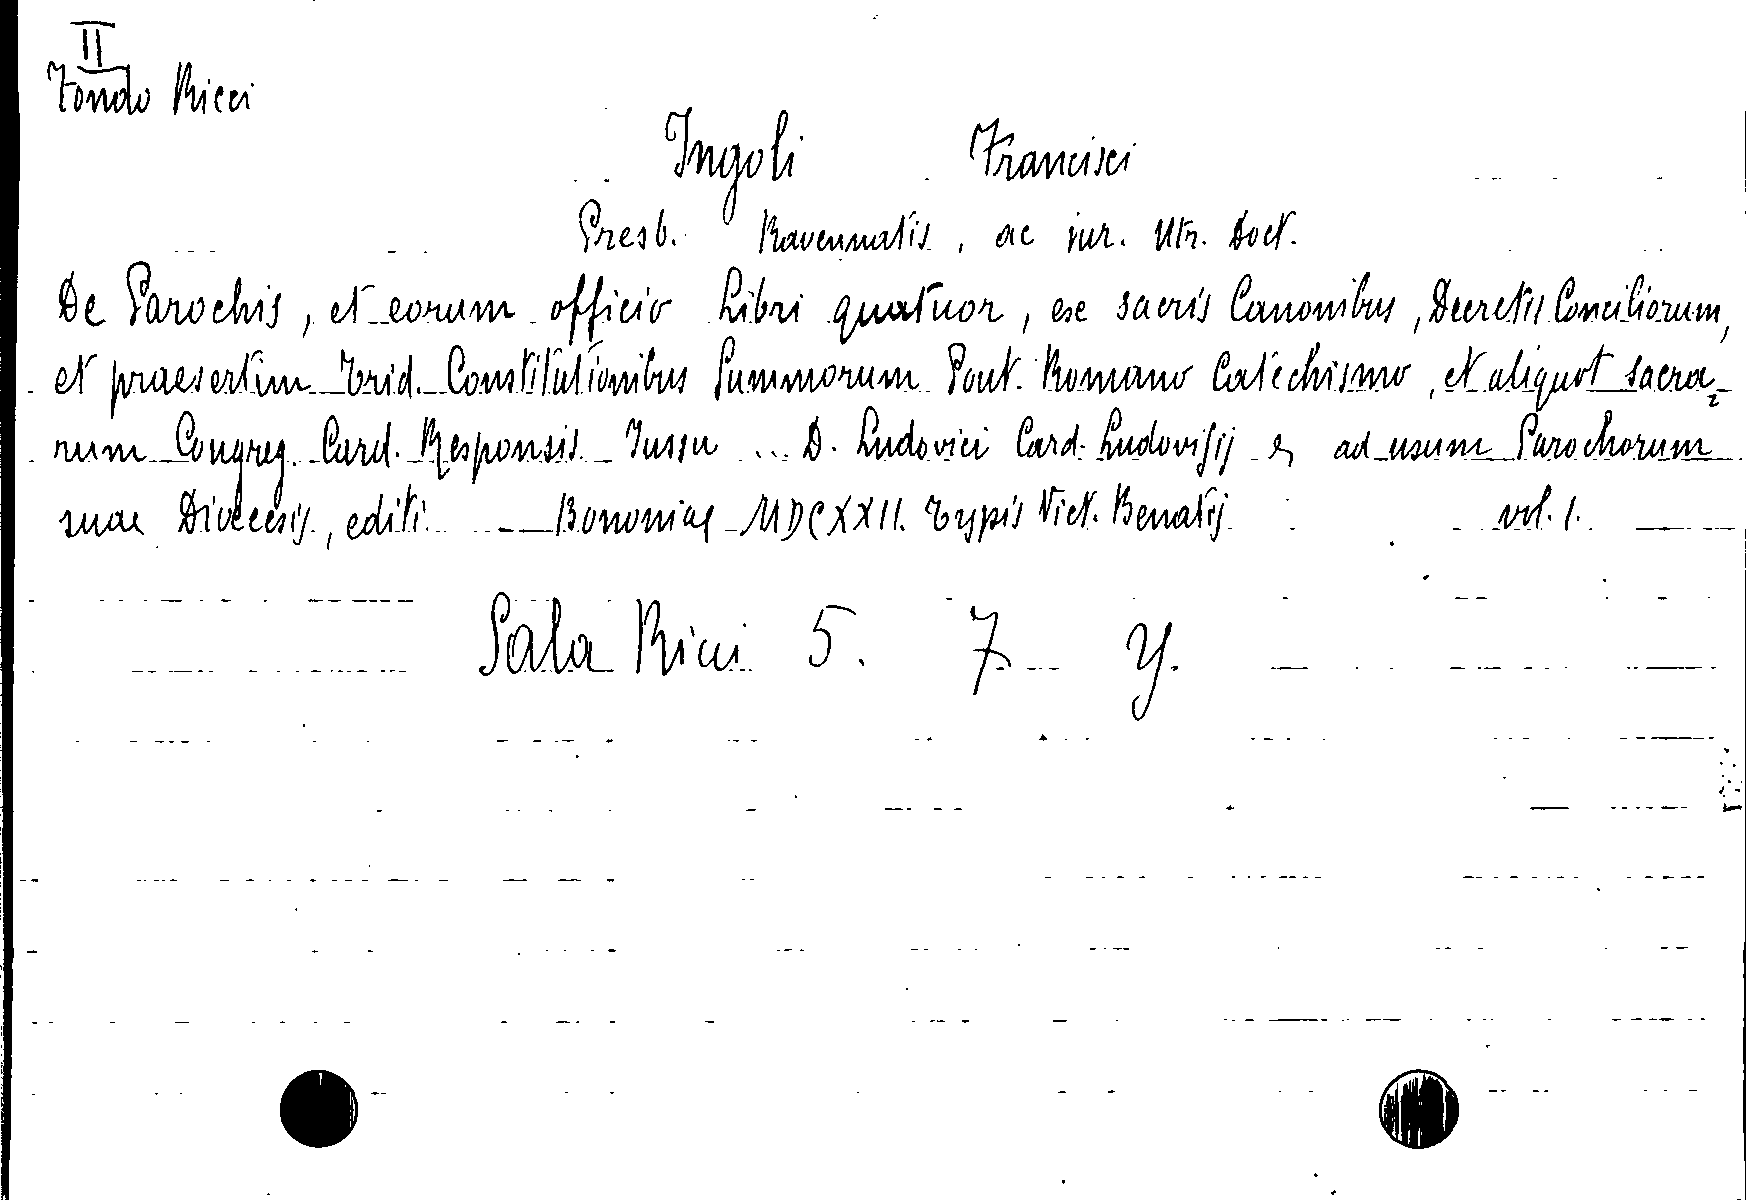 II
Fondo Ricci
Ingoli Francisci
Presb. Ravennatis, ac iur. Utr. Doct.
De Parochis, et eorum officio Libri quatuor, ex sacris Canonibus, Decretis Conciliorum,
et praesertim Trid. Constitutionibus Summorum Pont. Romano Catechismo, et aliquot sacra-
rum Congreg. Card. Responsis Iussu ... D. Ludovici Card. Ludovisij ad usum Parochorum
suae Dioecesis, editi Bononiae MDCXXII. Typis Vict. Benatij vol. 1.
Sala Ricci 5. 7 Y.